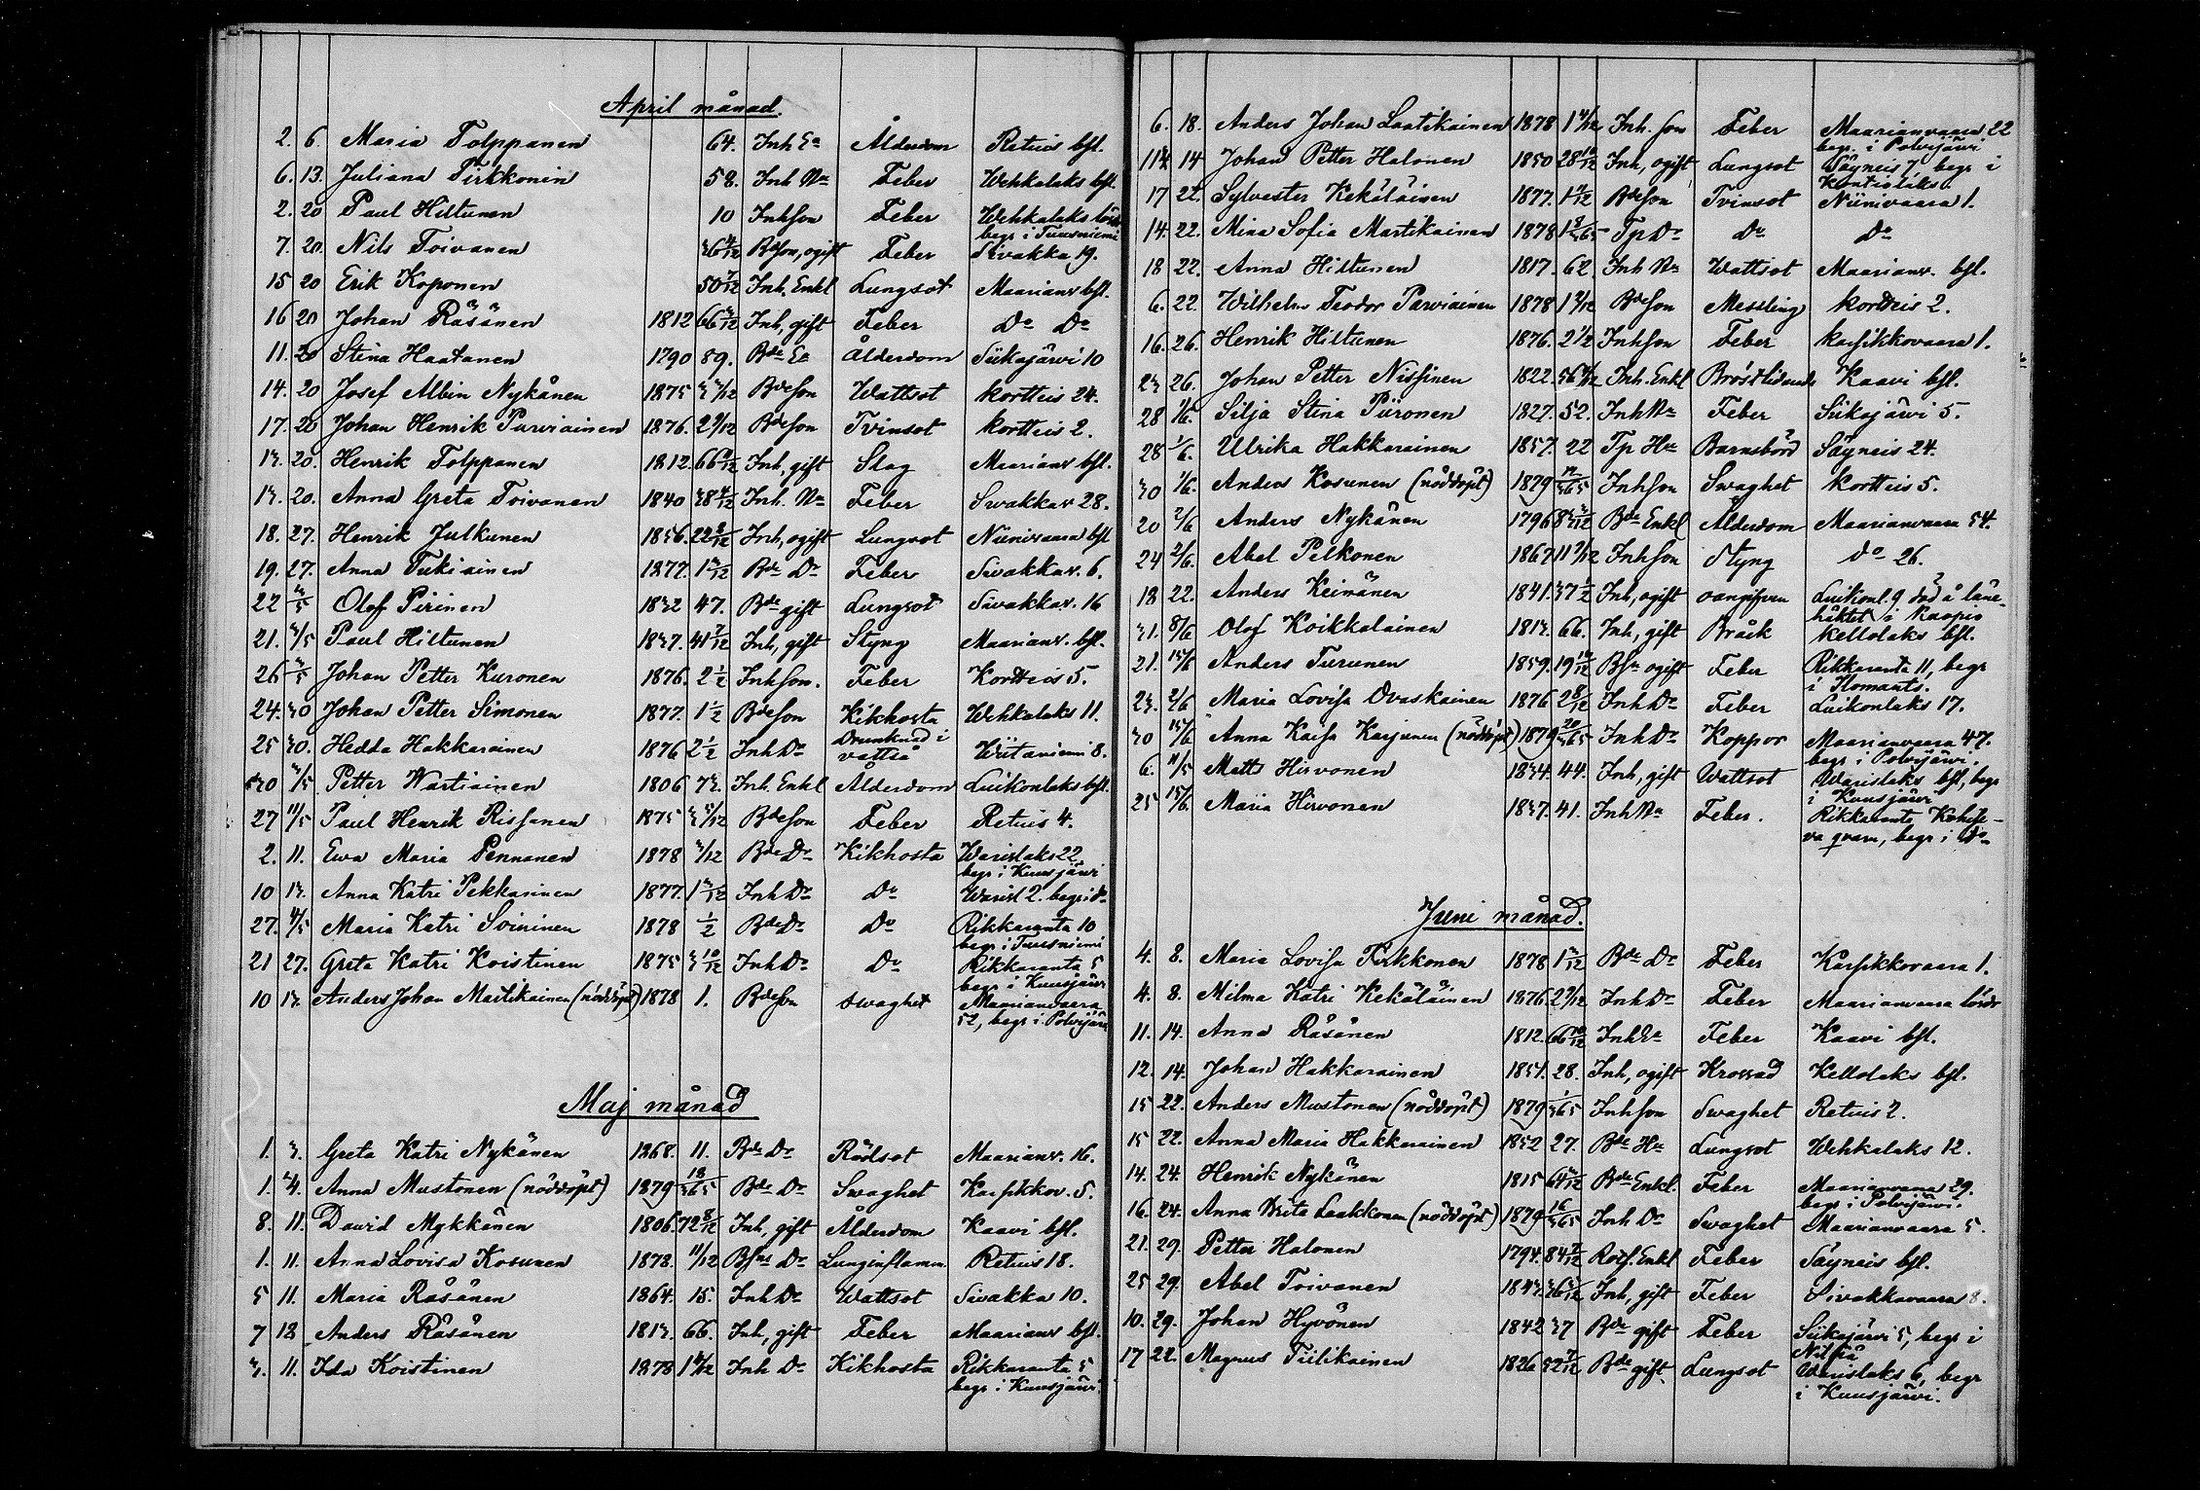 April månad.
2. 6. Maria Tolppanen 64. Inh Ea Ålderdom Retuis bfl.
6. 13. Juliana Tirkkonen 58. Inh Na Feber Wehkalaks bfl.
2. 20 Paul Hiltunen 10 Inhson Feber Wehkalaks
begr i Tuusniemi
7. 20. Nils Toivanen 36 4/12 Bdeson, ogift Feber Sivakka 19.
15 20 Erik Koponen 50 7/12 Inh. Enkl Lungsot Maarianv bfl.
16 20 Johan Räsänen 1812 66 3/12 Inh, gift Feber Do Do
11. 20 Stina Haatanen 1790 89. Bde Ea Ålderdom Siikajärvi 10
14. 20 Josef Albin Nykänen 1875 3 3/12 Bdeson Wattsot Kortteis 24.
17. 20 Johan Henrik Parviainen 1876. 2 9/12 Bdeson Tvinsot Kortteis 2.
13. 20. Henrik Tolppanen 1812. 66 Inh, gift Slag Maarianv bfl.
13. 20. Anna Greta Toivanen 1840 38 4/12 Inh. Na Feber Sivakkav 28.
18. 27. Henrik Julkunen 1856. 22 8/12 Inh, ogift Lungsot Niinivaara bfl
19. 27. Anna Tukiainen 1877. 1 Bde Dr Feber Sivakkav. 6.
22 4/5 Olof Pirinen 1832 47. Bde gift Lungsot Sivakkav. 16
21. 3/5 Paul Hiltunen 1837. 41 7/12 Inh, gift Styng Maarianv. bfl.
26 3/5 Johan Petter Kuronen 1876. 2 1/2 Inhson. Feber Kortteis 5.
24. 30 Johan Petter Simonen 1877. 1 1/2 Bdeson Kikhosta Wehkalaks 11.
25 30. Hedda Hakkarainen 1876 2 1/2 Inh Dr Drunknad i
vattså Wiitaniemi 8.
30 3/5 Petter Wartiainen 1806 73. Inh. Enkl Ålderdom Luikonlaks bfl.
27 11/5 Paul Henrik Rissanen 1875 3 5/12 Bdeson Feber Retuis 4.
2. 11. Ewa Maria Pennanen 1878 3/12 Bde Dr Kikhosta Warislaks 22
begr i Kuusjärvi
10 13. Anna Katri Pekkarinen 1877. 1 3/12 Inh Dr Do Warisl 2. begr i do
27. 4/5 Maria Katri Soininen 1878 1/2 Bde Dr Do Rikkaranta 10
begr i Tuusniemi
21 27. Greta Katri Koistinen 1875 3 10/12 Inh Dr Do Rikkaranta 5
begr i Kuusjärvi
10 13. Anders Johan Martikainen (nöddöpt) 1878 1. Bdeson Swaghet Maarianvaara
52, begr i Polvijärvi
Maj månad
1. 3. Greta Katri Nykänen 1868. 11. Bde Dr Rödsot Maarianv. 16.
1. 4. Anna Mustonen (nöddöpt) 1879 18/365 Bde Dr Swaghet Karsikkov. 5.
8. 11. David Mykkänen 1806. 72 8/12 Inh, gift Ålderdom Kaavi bfl.
1. 11. Anna Lovisa Kosunen 1878. 11/12 Bfns Dr Lunginflamm. Retuis 18.
5 11. Maria Räsänen 1864. 15. Inh Dr Wattsot Sivakka 10.
7 12 Anders Räsänen 1813. 66. Inh, gift Feber Maarianv bfl.
3. 11. Ida Koistinen 1878 1 4/12 Inh Dr Kikhosta Rikkaranta 5
begr i Kuusjärvi
6. 18. Anders Johan Laatikainen 1878 1 4/12 Inh. son Feber Maarianvaara 22
begr. i Polvijärvi
14 Johan Petter Halonen 1850 28 10/12 Inh, ogift Lungsot Säyneis 7, begr i
Kontiolaks
17 22. Sylvester Kekäläinen 1877. 1 Bdeson Tvinsot Niinivaara 1.
14. 22. Mina Sofia Martikainen 1878 1 8/365 Tp Dr Do Do
18 22. Anna Hiltunen 1817. 62 Inh Na Wattsot Maarianv. bfl.
6. 22. Wilhelm Teodor Parviainen 1878 1 Bdeson Messling Kortteis 2.
16. 26. Henrik Hiltunen 1876. 2 1/2 Inhson Feber Karsikkovaara 1.
23 26. Johan Petter Nissinen 1822. 56 Inh. Enkl Bröstlidande Kaavi bfl.
28 1/6. Silja Stina Piironen 1827. 52. Inh Na Feber Siikajärvi 5.
28 1/6. Ulrika Hakkarainen 1857. 22 Tp Hu Barnsbörd Säyneis 24.
30 1/6. Anders Kosunen (nöddöpt) 1879 Inhson Swaghet Kortteis 5.
20 2/6 Anders Nykänen 1796 83 3/12 Bde Enkl Ålderdom Maarianvaara 54.
24 2/6. Abel Pelkonen 1867 11 7/12 Inhson Styng do 26.
18 22. Anders Keinänen 1841. 37 1/2 Inh, ogift oangifven Luikonl. 9 död å läne-
häktet i Kuopio
31. 8/6 Olof Koikkalainen 1813. 66. Inh, gift Bråck Kellolaks bfl.
21. 15/6 Anders Turunen 1859. 19 10/12 Bfn ogift Feber Rikkaranta 11, begr
i Ilomants.
23. 2/6 Maria Lovisa Ovaskainen 1876 2 8/12 Inh Dr Feber Luikonlaks 17.
30 15/6 Anna Kaisa Karjunen (nöddöpt) 1879 20/365 Inh Dr Koppor Maarianvaara 47.
begr i Polvijärvi.
6. 11/5 Matts Hirvonen 1834. 44. Inh, gift Wattsot Warislaks bfl, begr
i Kuusjärvi
25 15/6. Maria Hirvonen 1837. 41. Inh Na Feber. Rikkaranta
va qvarn, begr i do
Juni månad.
4. 8. Maria Lovisa Tirkkonen 1878 1 3/12 Bde Dr Feber Karsikkovaara 1.
4. 8. Milma Katri Kekäläinen 1876. 2 9/12 Inh Dr Feber Maarianvaara
11. 14. Anna Räsänen 1812. 66 10/12 Inh Ea Feber Kaavi bfl.
12. 14. Johan Hakkarainen 1851. 28. Inh, ogift Krossad Kellolaks bfl.
15 22. Anders Mustonen (nöddöpt) 1879 1/365 Inhson Swaghet Retuis 2.
15 22. Anna Maria Hakkarainen 1852 27. Bde Hu Lungsot Wehkalaks 12.
14. 24. Henrik Nykänen 1815 64 Bde Enkl. Feber Maarianvaara 29.
begr i Polvijärvi.
16. 24. Anna Brita Laakkonen (nöddöpt) 1879 16/365 Inh Dr Swaghet Maarianvaara 5.
21. 29. Petter Halonen 1794. 84 7/12 Rotf. Enkl Feber Säyneis bfl.
25 29. Abel Toivanen 1843. 36 Inh, gift Feber Sivakkavaara 8.
10. 29. Johan Hyvönen 1842 37 Bde gift Feber Siikajärvi 5, begr i
Nilsiä
17 22. Magnus Tiilikainen 1826 52 7/12 Bde gift Lungsot Warislaks 6, begr
i Kuusjärvi.